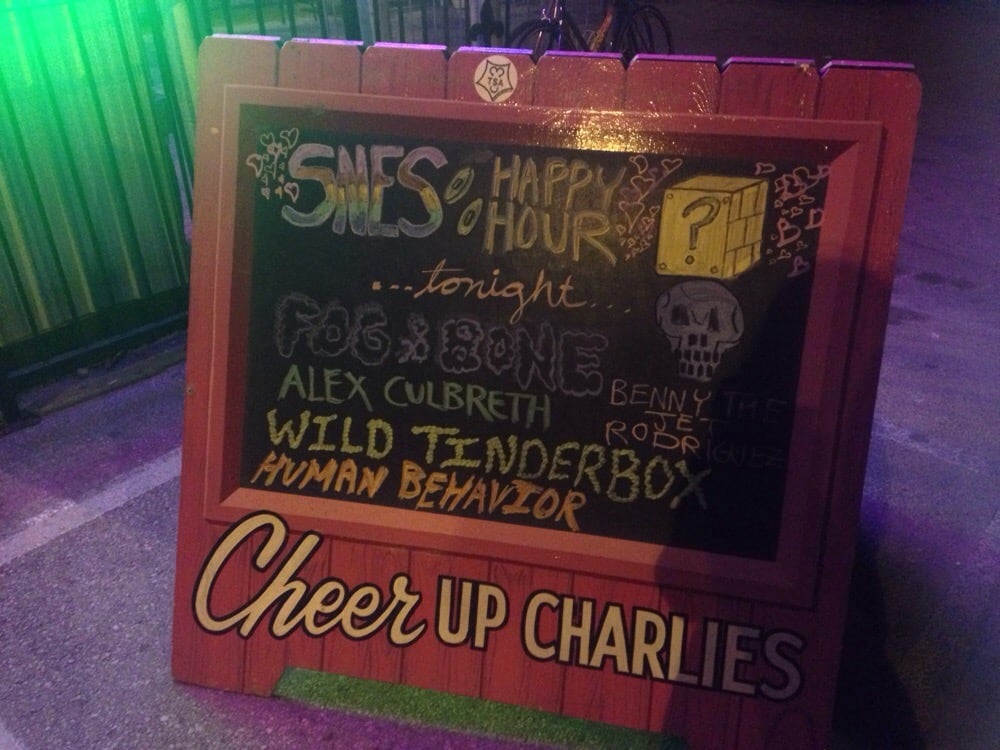 TSA
SNES HAPPY
HOUR
?
...tonight...
FOG & BONE
ALEX CULBRETH
WILD TINDERBOX
HUMAN BEHAVIOR
BENNY THE
JET
RODRIGUEZ
Cheer UP CHARLIES